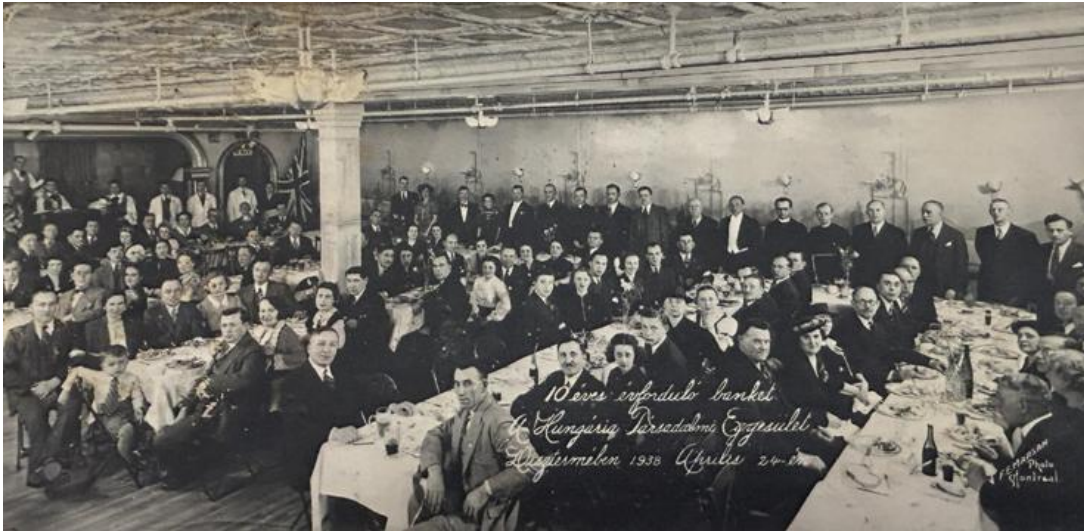 10 éves évforduló banket
A Hungária Társadalmi Egyesület
Disztermében 1938 Április 24-én
F.E. MARSAN
Photo
Montreal